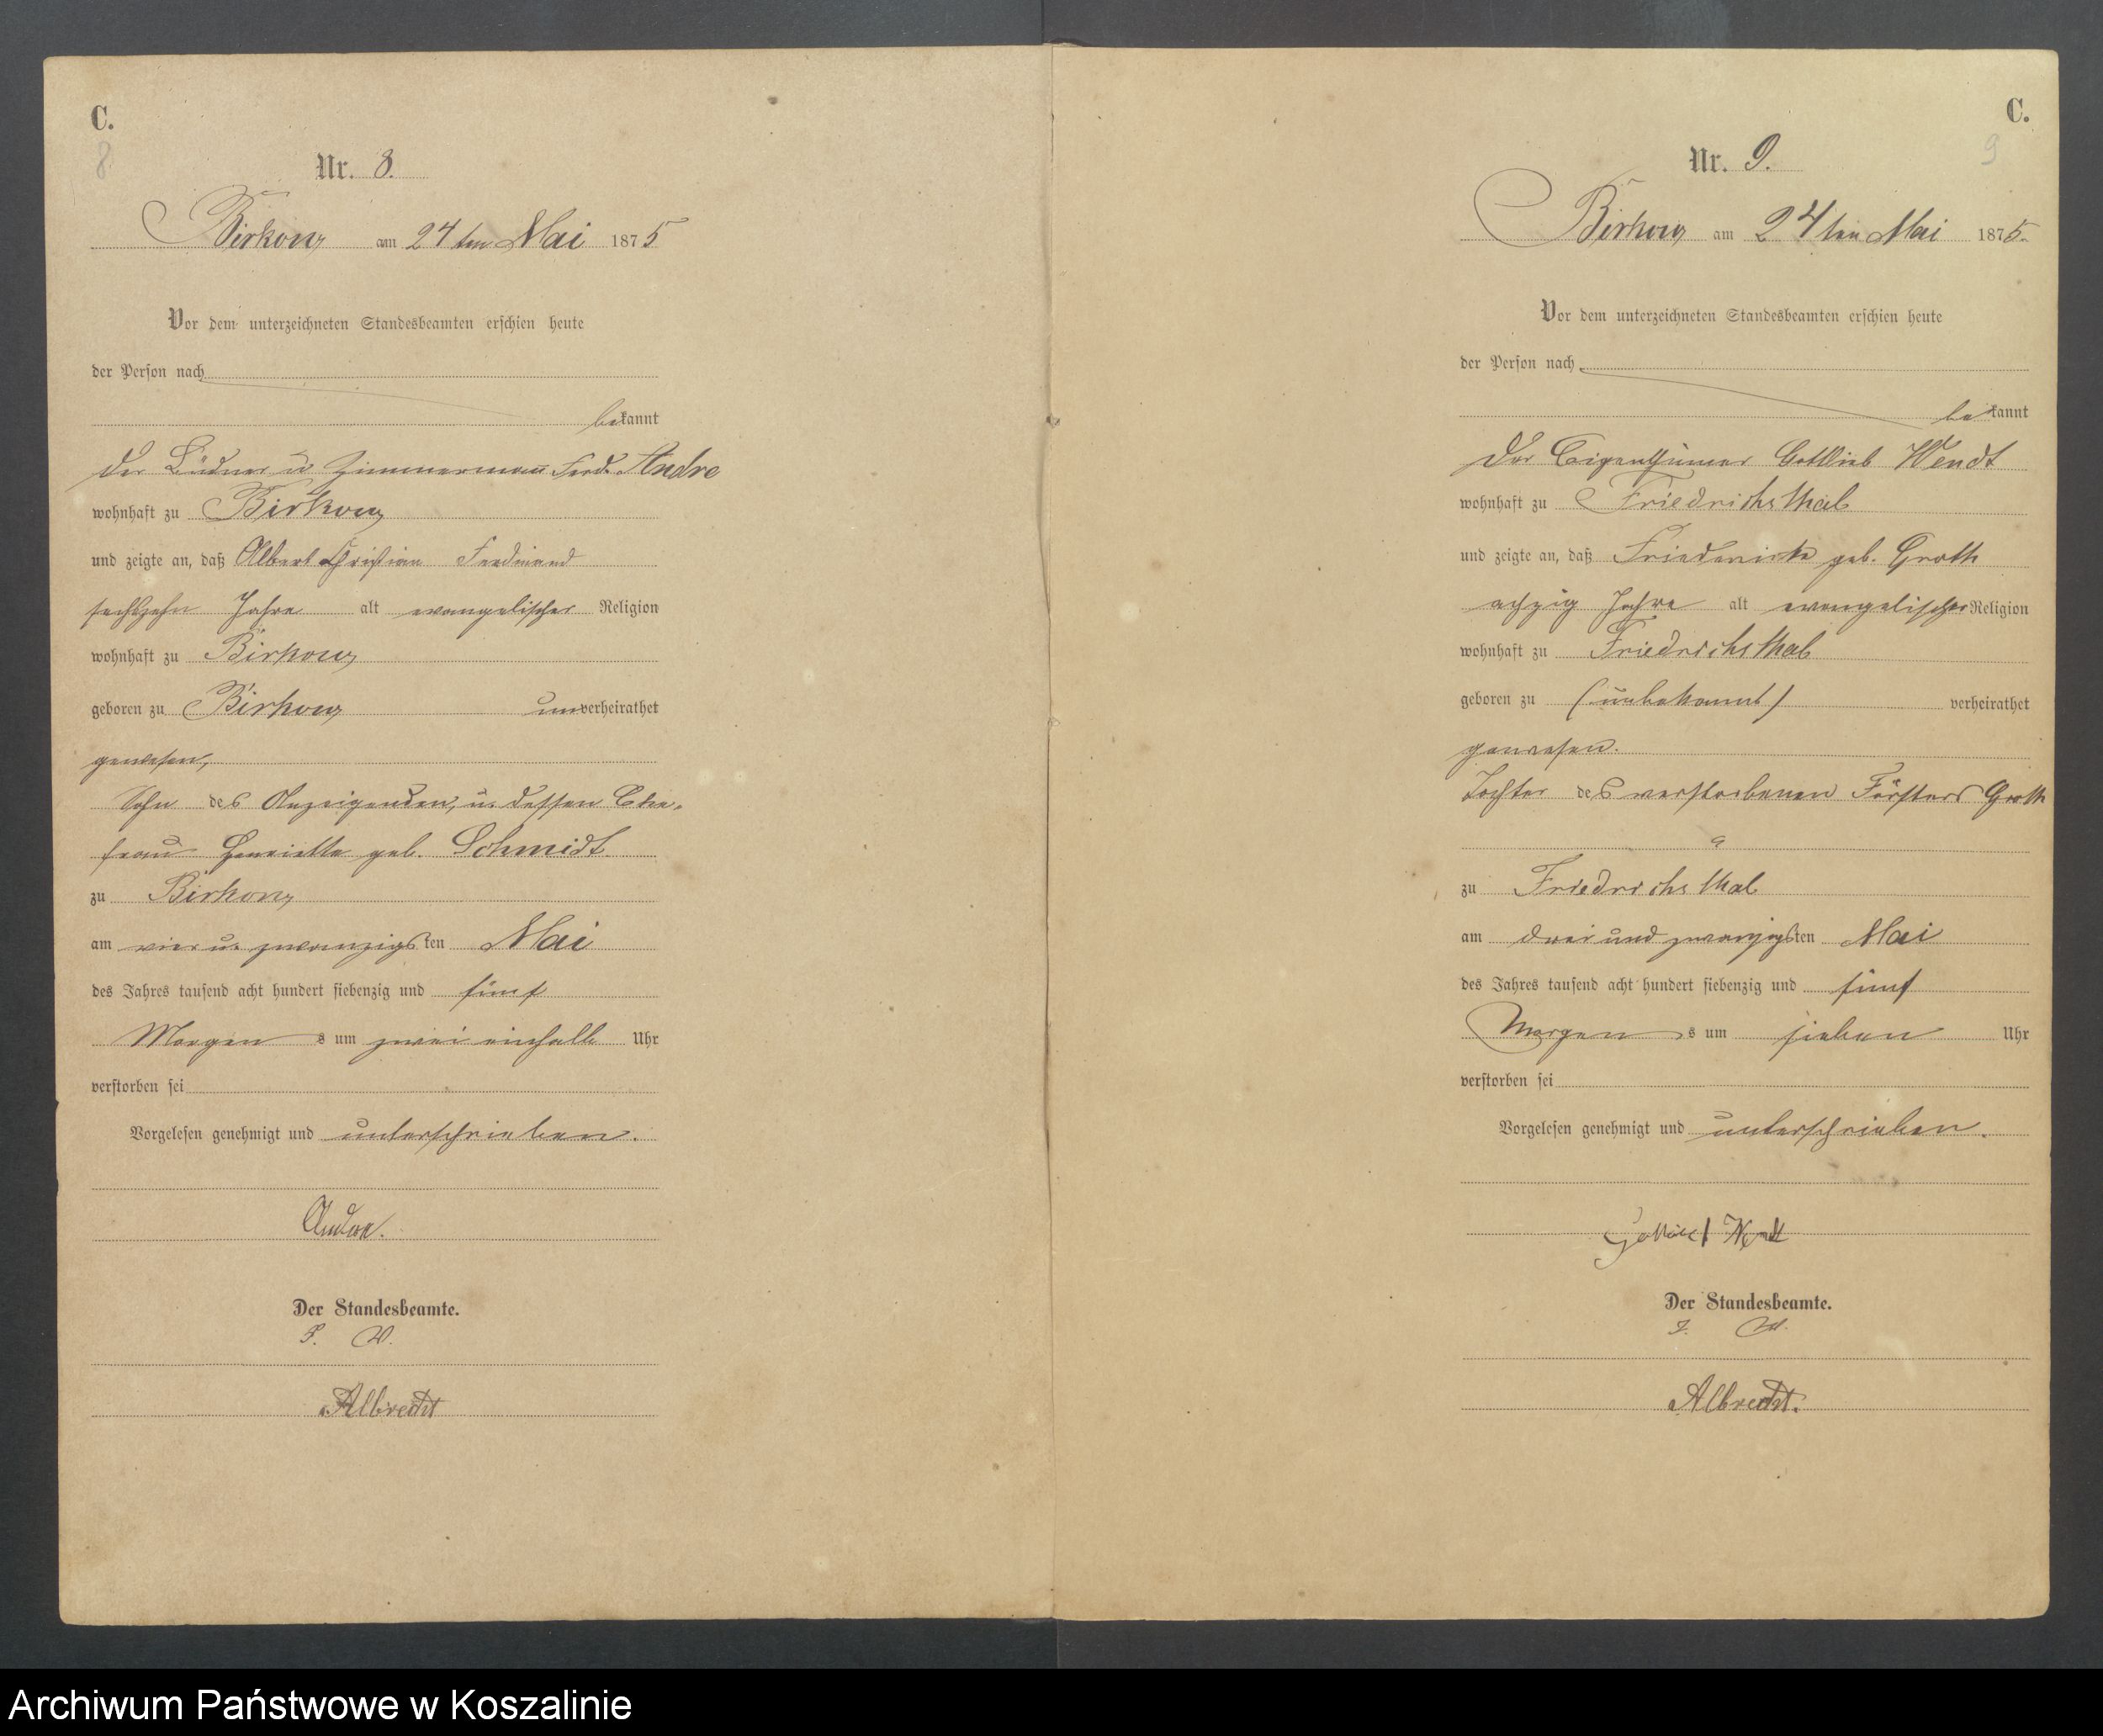 C.
8
Nr. 8.
Birkow am 24ten Mai 1875
Vor dem unterzeichneten Standesbeamten erschien heute
der Person nach
bekannt
Der Büdner u Zimmermann Ferd. Andre
wohnhaft zu Birkow
und zeigte an, daß Albert Christian Ferdinand
sechszehn Jahre alt evangelischer Religion
wohnhaft zu Birkow
geboren zu Birkow unverheirathet
gewesen,
Sohn des Anzeigenden, u. dessen Ehe-
frau Henriette geb. Schmidt.
zu Birkow
am vier u. zwanzigsten Mai
des Jahres tausend acht hundert siebenzig und fünf
Morgens um zwei einhalb Uhr
verstorben sei
Vorgelesen genehmigt und unterschrieben.
Andre.
Der Standesbeamte.
I. V.
Albrecht
C.
9
Nr. 9.
Birkow am 24ten Mai 1875.
Vor dem unterzeichneten Standesbeamten erschien heute
der Person nach
bekannt
Der Eigenthümer Gottlieb Wendt
wohnhaft zu Friedrichsthal
und zeigte an, daß Friedericke geb. Groth
achzig Jahre alt evangelischer Religion
wohnhaft zu Friedrichsthal
geboren zu (unbekannt) verheirathet
gewesen.
Tochter des verstorbenen Försters Groth
zu Friedrichsthal
am drei und zwanzigsten Mai
des Jahres tausend acht hundert siebenzig und fünf
Morgens um sieben Uhr
verstorben sei
Vorgelesen genehmigt und unterschrieben.
Gottlieb Wendt
Der Standesbeamte.
I. V.
Albrecht.
Archiwum Państwowe w Koszalinie